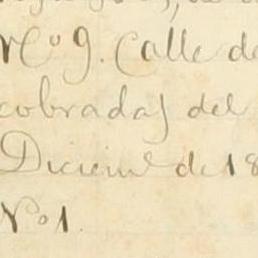 Nº 9. Calle de
cobradas del
Diciemᵉ de 18
Nº 1.